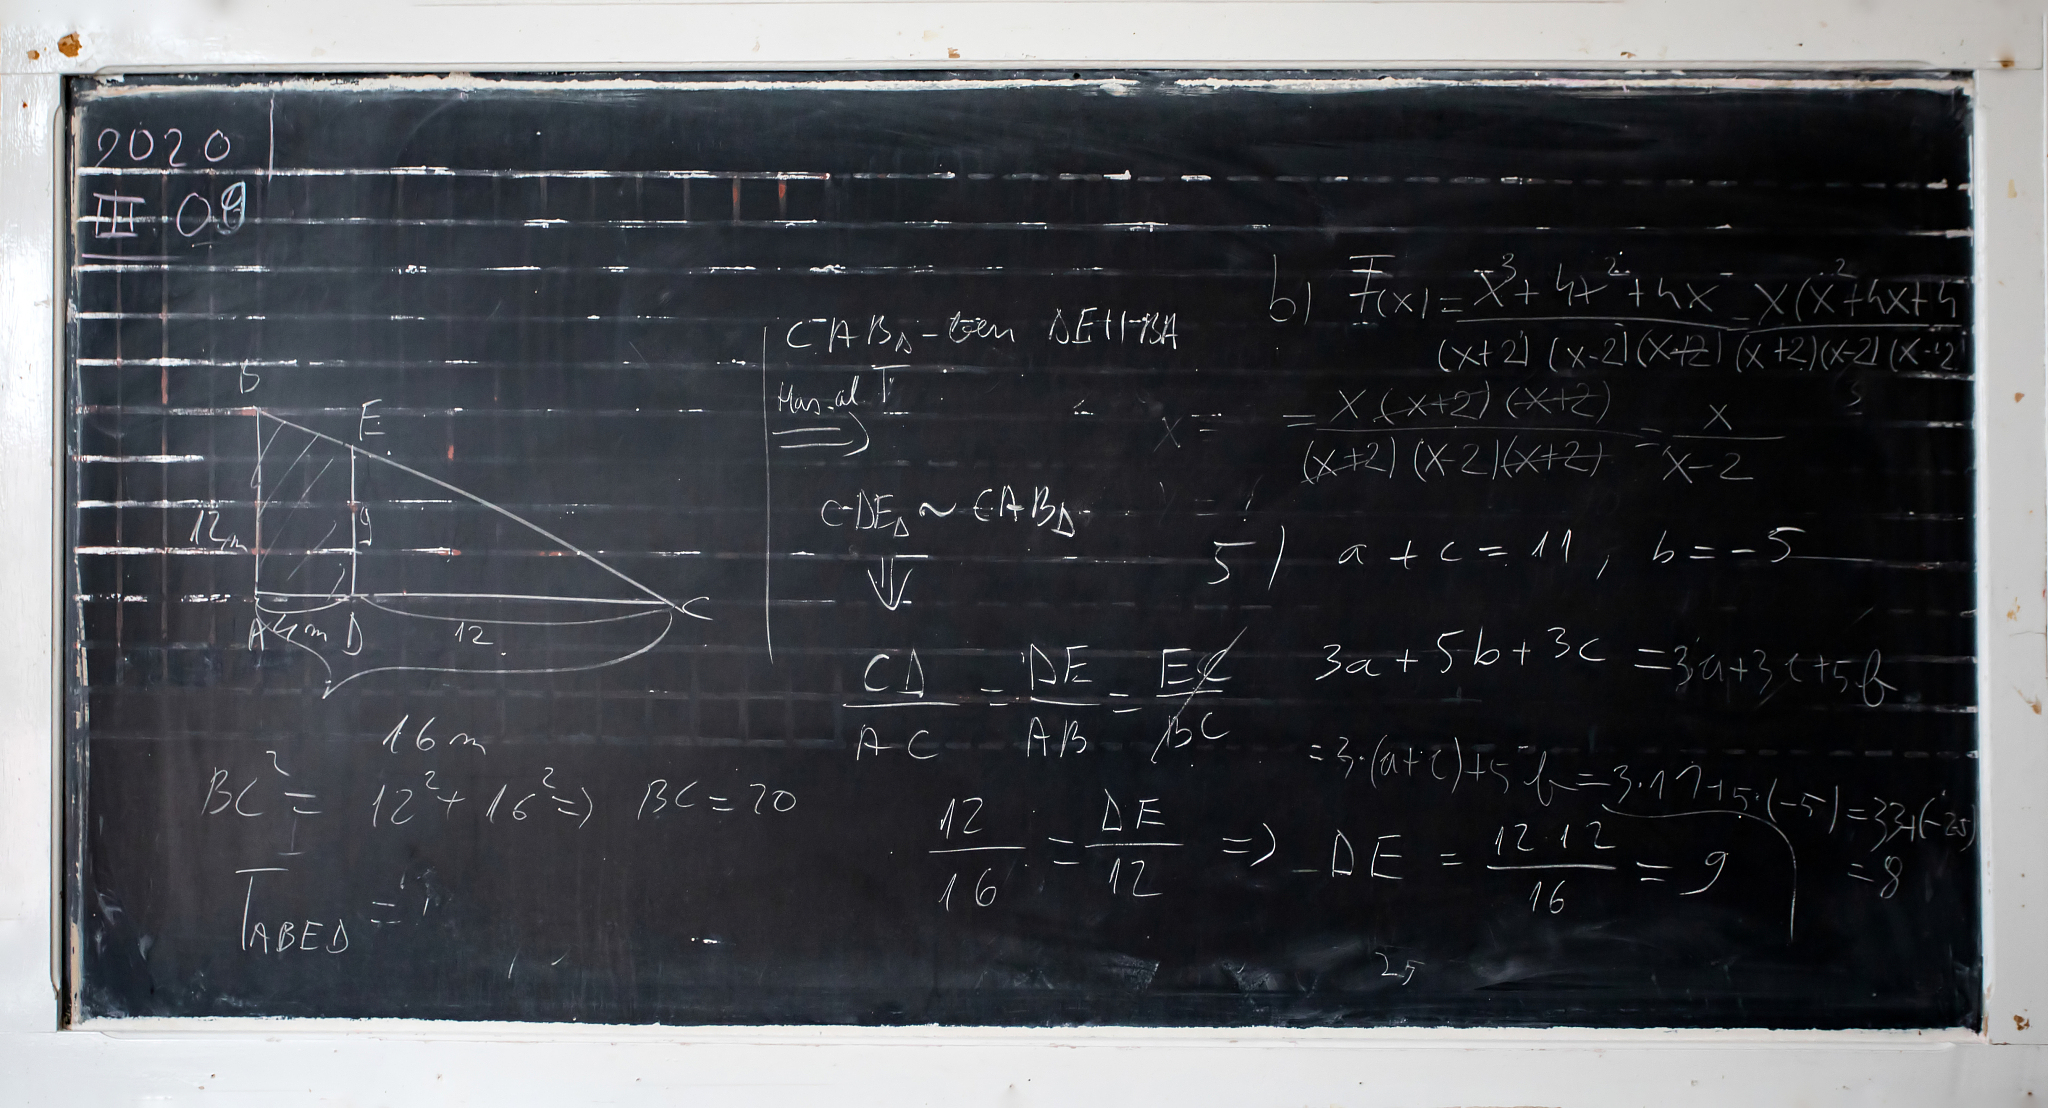 2020
III 09
B
E
12m
9
A 4m D
12
C
16m
BC² = 12² + 16² => BC = 20
T ABED =
CABΔ-ben DE || BA
Has. al T
=>
CDEΔ ~ CABΔ
⇓
CD/AC = DE/AB = EC/BC
12/16 = DE/12 => DE = 12·12/16 = 9
b) F(x) = x³+4x²+4x/(x+2)(x-2)(x+2) = x(x²+4x+4/(x+2)(x-2)(x+2
= x(x+2)(x+2)/(x+2)(x-2)(x+2) = x/x-2
x =
5) a + c = 11, b = -5
3a + 5b + 3c = 3a+3c+5b
= 3·(a+c)+5b = 3·11+5·(-5) = 33+(-25)
= 8
25